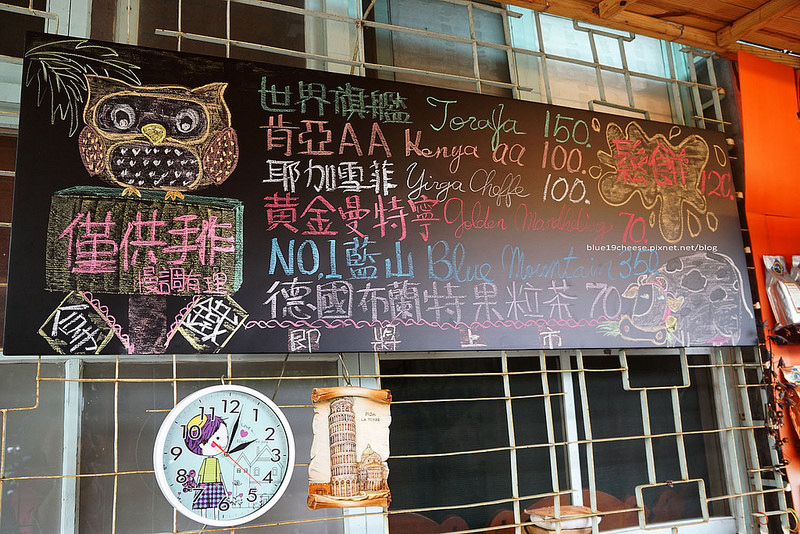 世界旗艦 Toraja 150.
肯亞AA Kenya aa 100.
耶加雪菲 Yirga Cheffe 100.
黃金曼特寧 Golden Mandheling 70.
NO.1藍山 Blue Mountain 350
德國布蘭特果粒茶 70
即將上市
鬆餅 120.
僅供手作
慢調有理
blue19cheese.pixnet.net/blog
12 1 2 3 4 5 6 7 8 9 10 11
PISA
LA TORRE